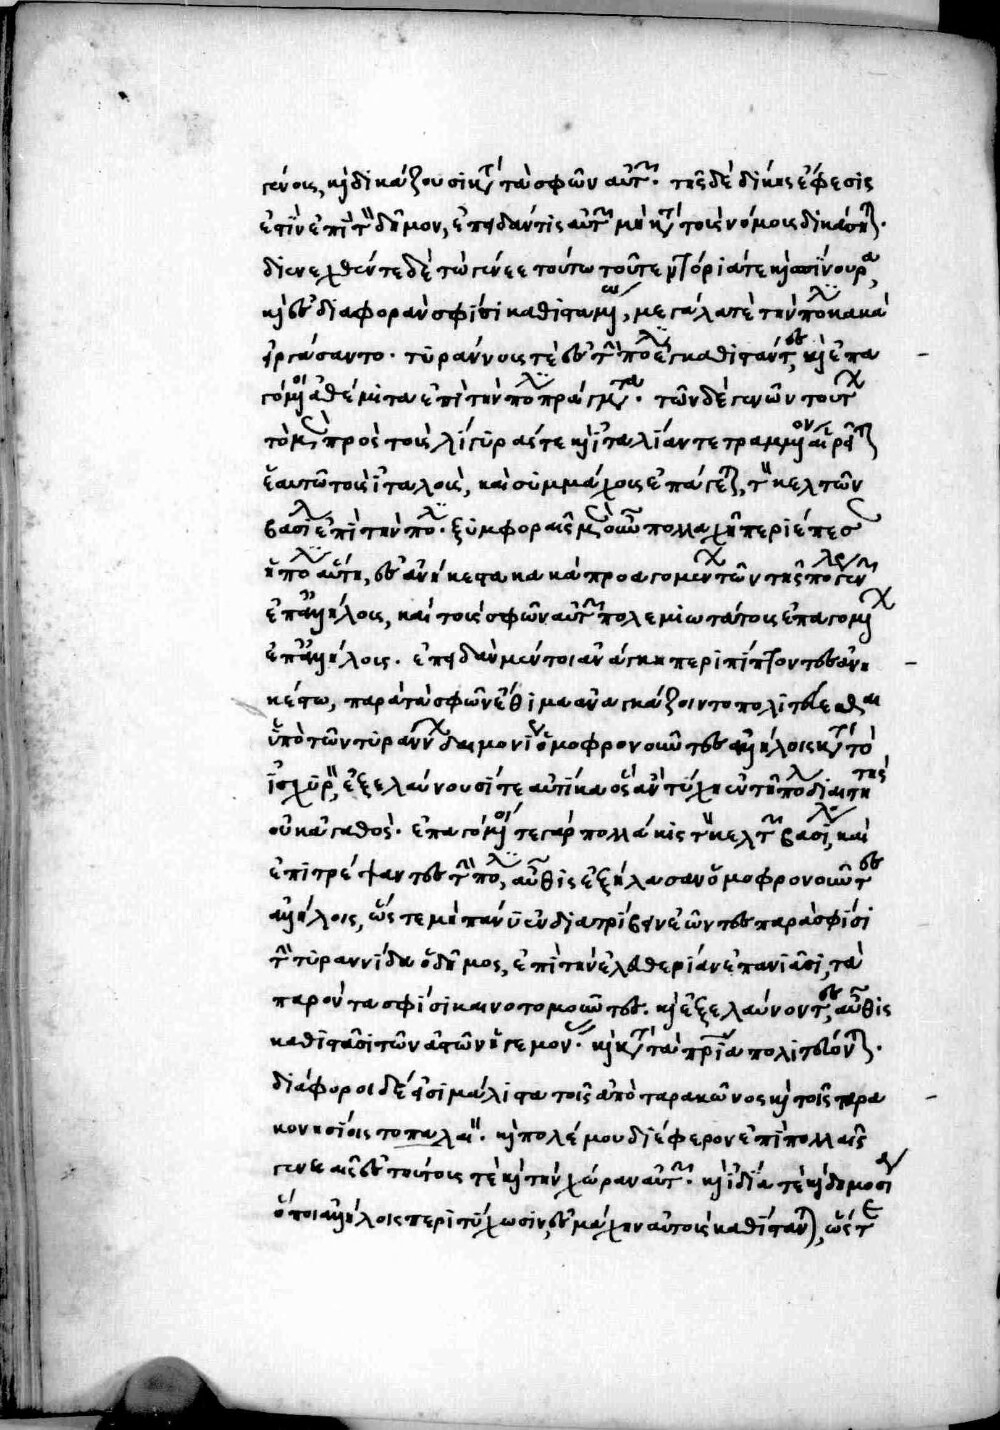 γένους, καὶ δικάζουσι κατὰ τὰ σφῶν αὐτῶν. τῆς δὲ δίκης ἔφεσις
ἐστὶν ἐπὶ τὸν δῆμον, ἐπειδάν τις αὐτῶν μὴ κατὰ τοὺς νόμους δικάσῃ.
διενεχθέντε δὲ τὼ γένεε τούτω τοῦτε ντόριά τε καὶ σπίνουρα,
καὶ ἐς διαφορὰν σφίσι καθισταμένω, μεγάλα τε τὴν πόλιν κακὰ
εἰργάσαντο. τυράννους τε ἐς τὴν πόλιν ἐγκαθιστάντες, καὶ ἐπα
γόμενοι ἀθέμιτα ἐπὶ τὴν πόλιν πράγματα. τῶν δὲ γενῶν τούτων
τὸ μὲν πρὸς τοὺς λίγυρας τε καὶ ἰταλίαν τετραμμένον αἱρεῖται
ἑαυτῷ τοὺς ἰταλοὺς, καὶ συμμάχους ἐπάγεται, τὸν κελτῶν
βασιλέα ἐπὶ τὴν πόλιν. ξυμφοραῖς μὲν οὖν πολλαχῇ περιέπεσεν
ἡ πόλις αὕτη, ἐς ἀνήκεστα κακὰ προαγομένων τῶν τῆς πόλεως γενῶν
ἐπ' ἀλλήλους, καὶ τοὺς σφῶν αὐτῶν πολεμιωτάτους ἐπαγομένων
ἐπ' ἀλλήλους. ἐπειδὰν μέντοι ἀνάγκῃ περιπίπτοντες ἀνη
κέστῳ, παρὰ τὰ σφῶν ἔθιμα ἀναγκάζοιντο πολιτεύεσθαι
ὑπὸ τῶν τυράννων δαιμονίως ὁμοφρονοῦντες ἀλλήλοις κατὰ τὸ
ἰσχυρὸν, ἐξελαύνουσί τε αὐτίκα ὃς ἂν τύχῃ ἐν τῇ πόλει διαιτητὴς
οὐκ ἀγαθὸς. ἐπαγόμενοί τε γὰρ πολλάκις τὸν κελτῶν βασιλέα, καὶ
ἐπιτρέψαντες τὴν πόλιν, αὖθις ἐξήλασαν ὁμοφρονοῦντες
ἀλλήλοις, ὥς τε μὴ πάνυ ἐνδιατρίβειν ἐῶντες παρὰ σφίσι
τὴν τυραννίδα ὁ δῆμος, ἐπὶ τὴν ἐλευθερίαν ἐπανίασι, τὰ
παρόντα σφίσι καινοτομοῦντες. καὶ ἐξελαύνοντες, αὖθις
καθιστᾶσι τῶν ἀστῶν ἡγεμόνας. καὶ κατὰ τὰ πάτρια πολιτεύονται.
διάφοροι δέ εἰσι μάλιστα τοῖς ἀπὸ ταρακῶνος καὶ τοῖς ταρα
κονησίοις τὸ παλαιόν. καὶ πολέμου διέφερον ἐπὶ πολλαῖς
γενεαῖς ἐς τούτους τε καὶ τὴν χώραν αὐτῶν. καὶ ἰδίᾳ τε καὶ δημοσίᾳ
ὅποι ἀλλήλοις περιτύχωσιν, ἐς μάχην αὐτοὺς καθίστανται, ὥς τε